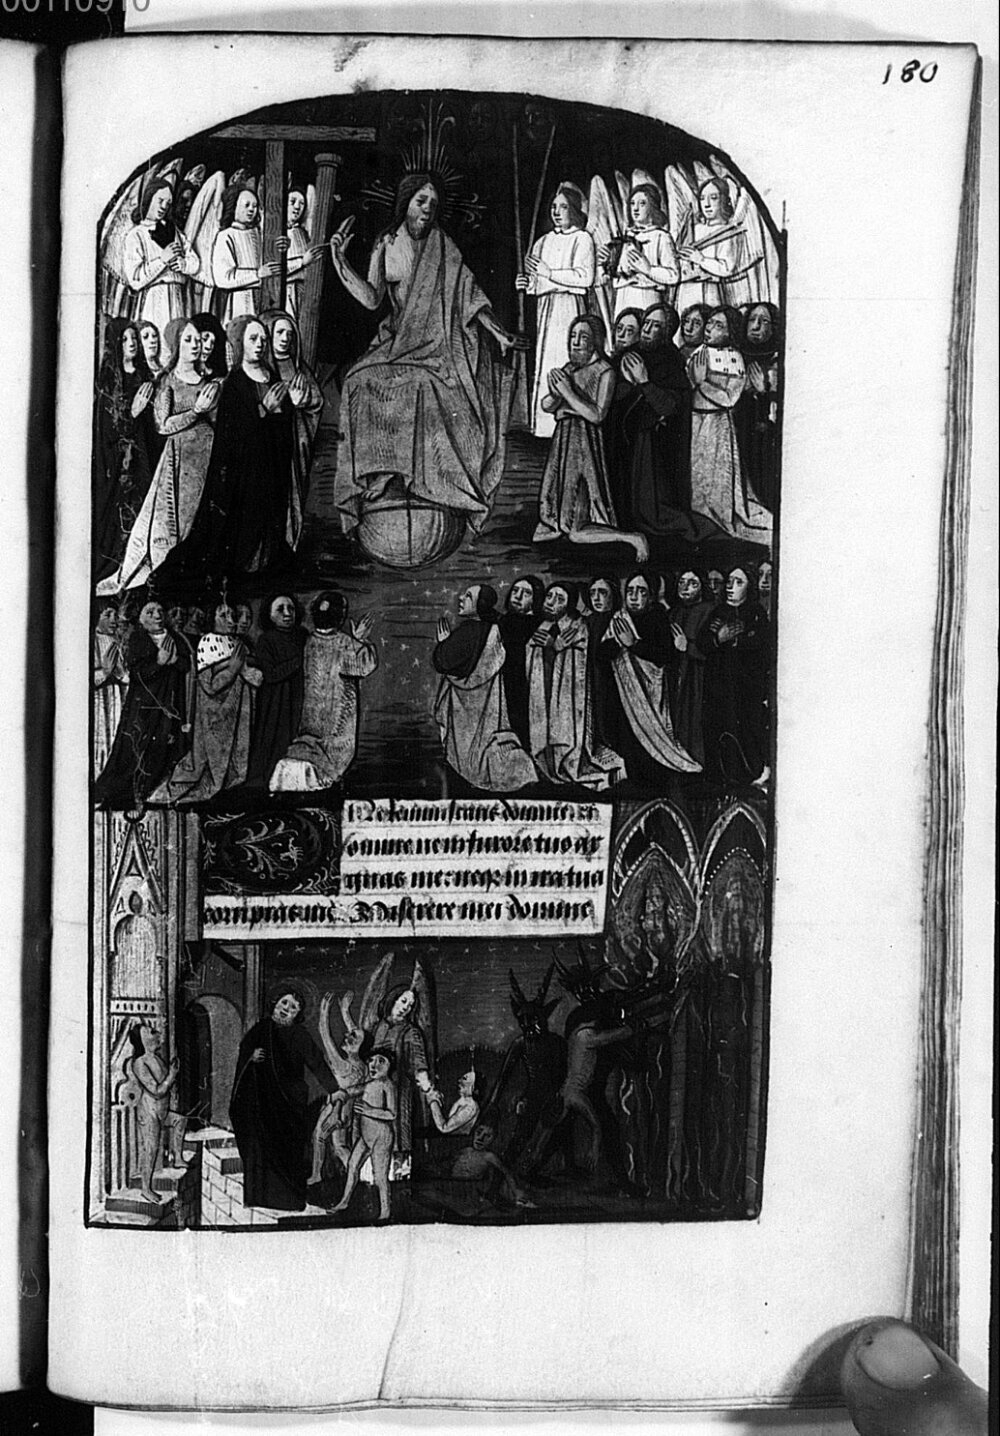 00110910
180
Ne reminiscaris domine. et
omine ne in furore tuo ar
guas me: neqz in ira tua
corripias me. Miserere mei domine